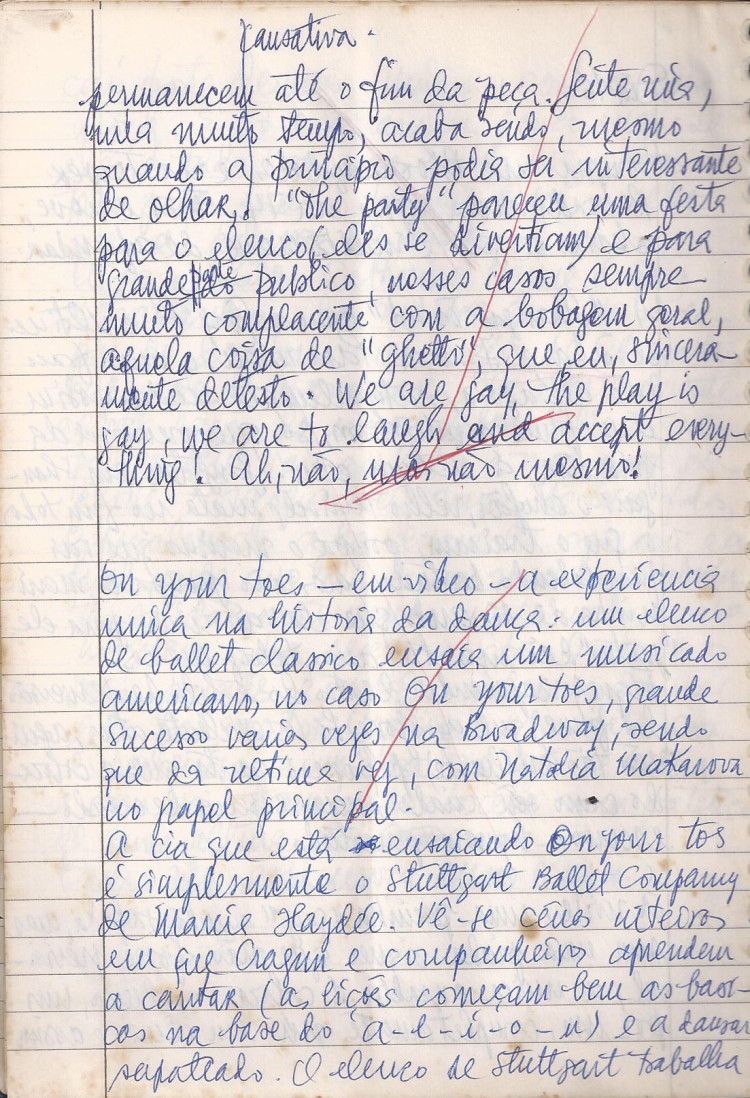 causativa.
permanecem até o fim da peça. Gente nua,
nua muito tempo, acaba sendo, mesmo
quando a principio podia ser interessante
de olhar. "The party" pareceu uma festa
para o elenco (eles se divertiam) e para
grande parte do publico, nesses casos sempre
muito complacente com a bobagem geral,
aquela coisa de "ghetto", que eu, sincera-
mente detesto. We are gay, the play is
gay, we are to laugh and accept every-
thing. Ah, não, mas não mesmo!
On your toes – em video – a experiencia
unica na historia da dança: um elenco
de ballet classico ensaia um musicado
americano, no caso On your toes, grande
sucesso varias vezes na Broadway, sendo
que da ultima vez, com Natalia Makarova
no papel principal.
A cia que está ensaiando On your tos
é simplesmente o Stuttgart Ballet Company
de Marcia Haydée. Vê-se cenas inteiras
em que Cragun e companheiros aprendem
a cantar (as lições começam bem as basi-
cas na base do a-e-i-o-u) e a dansar
sapateado. O elenco de Stuttgart trabalha